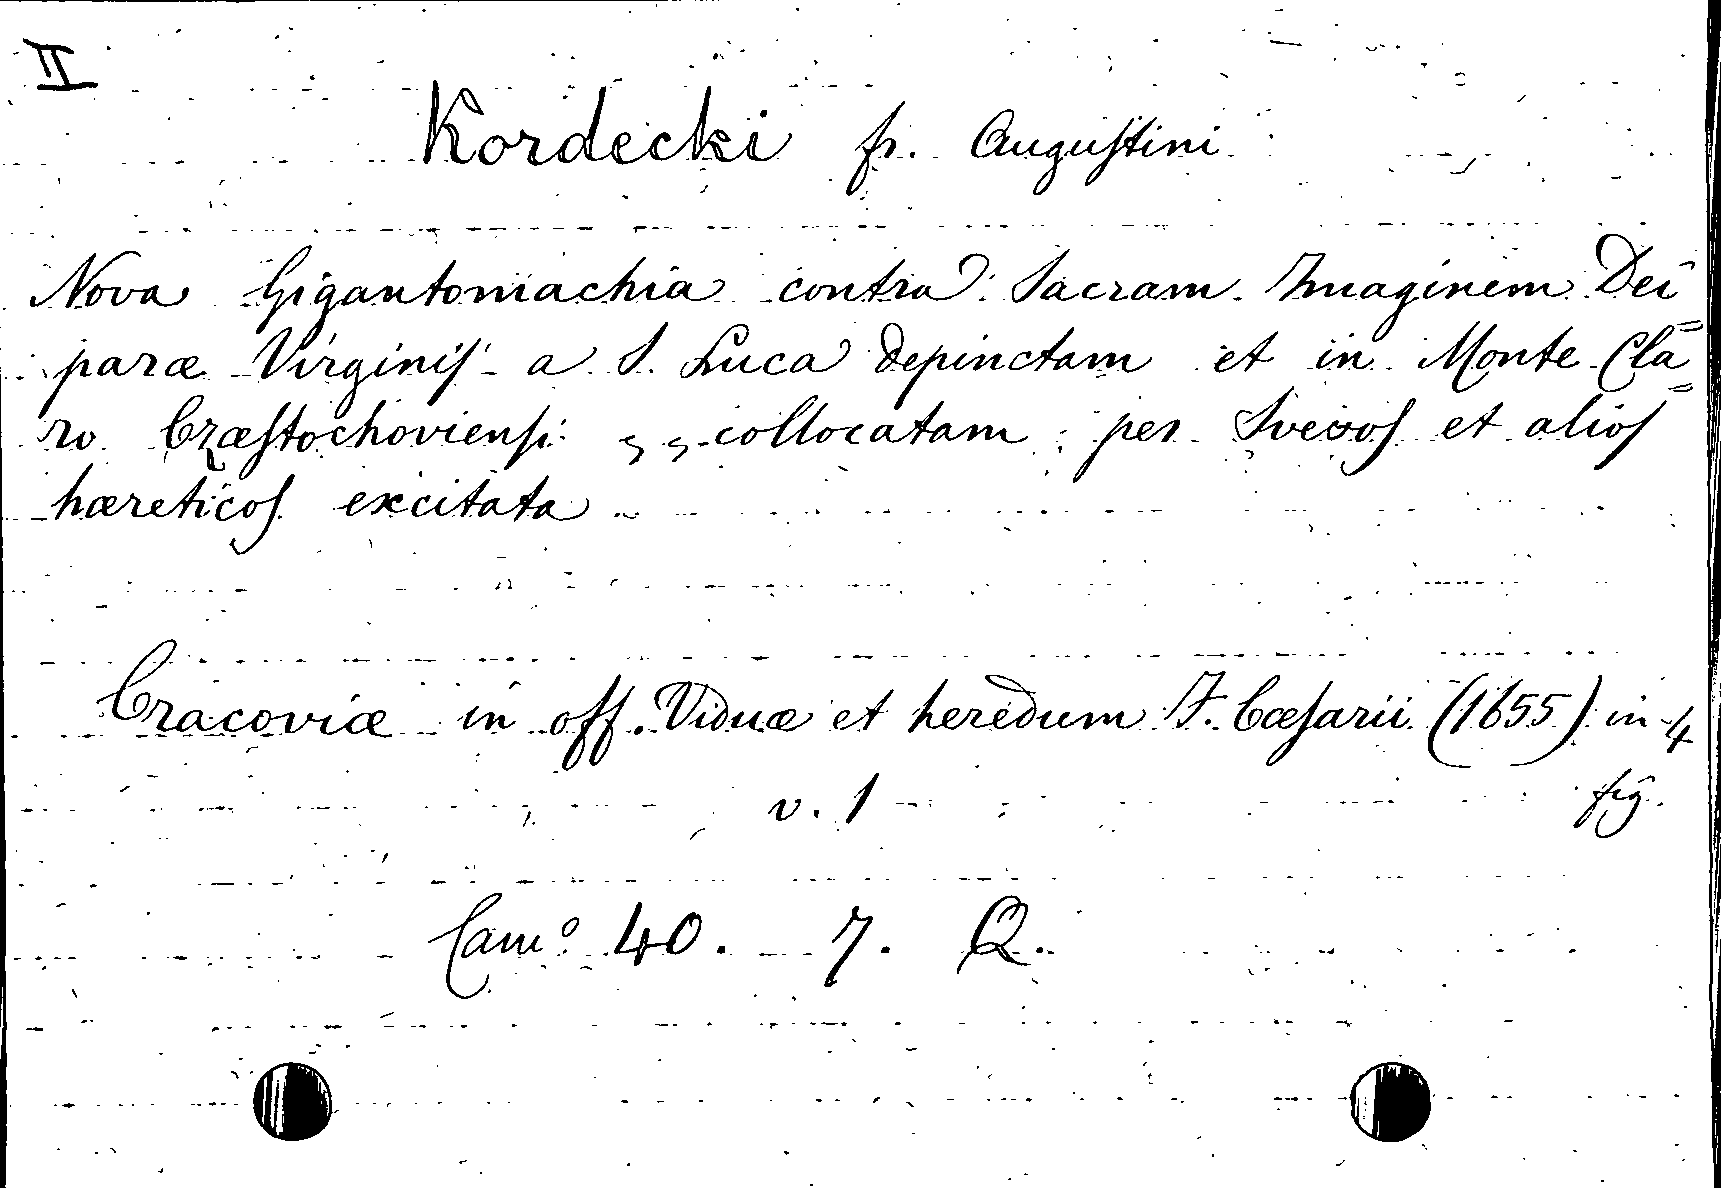 II
Kordecki fr. Auguſtini
Nova Gigantomachia contra Sacram Imaginem Dei=
paræ Virginiſ a S. Luca depinctam et in Monte Cla=
ro Czæſtochovienſi „ collocatam per Svecoſ et alioſ
hæreticoſ excitata
Cracoviæ in off. Viduæ et heredum F. Cæſarii (1655) in 4
v. 1 fig.
Camº 40. 7. Q.